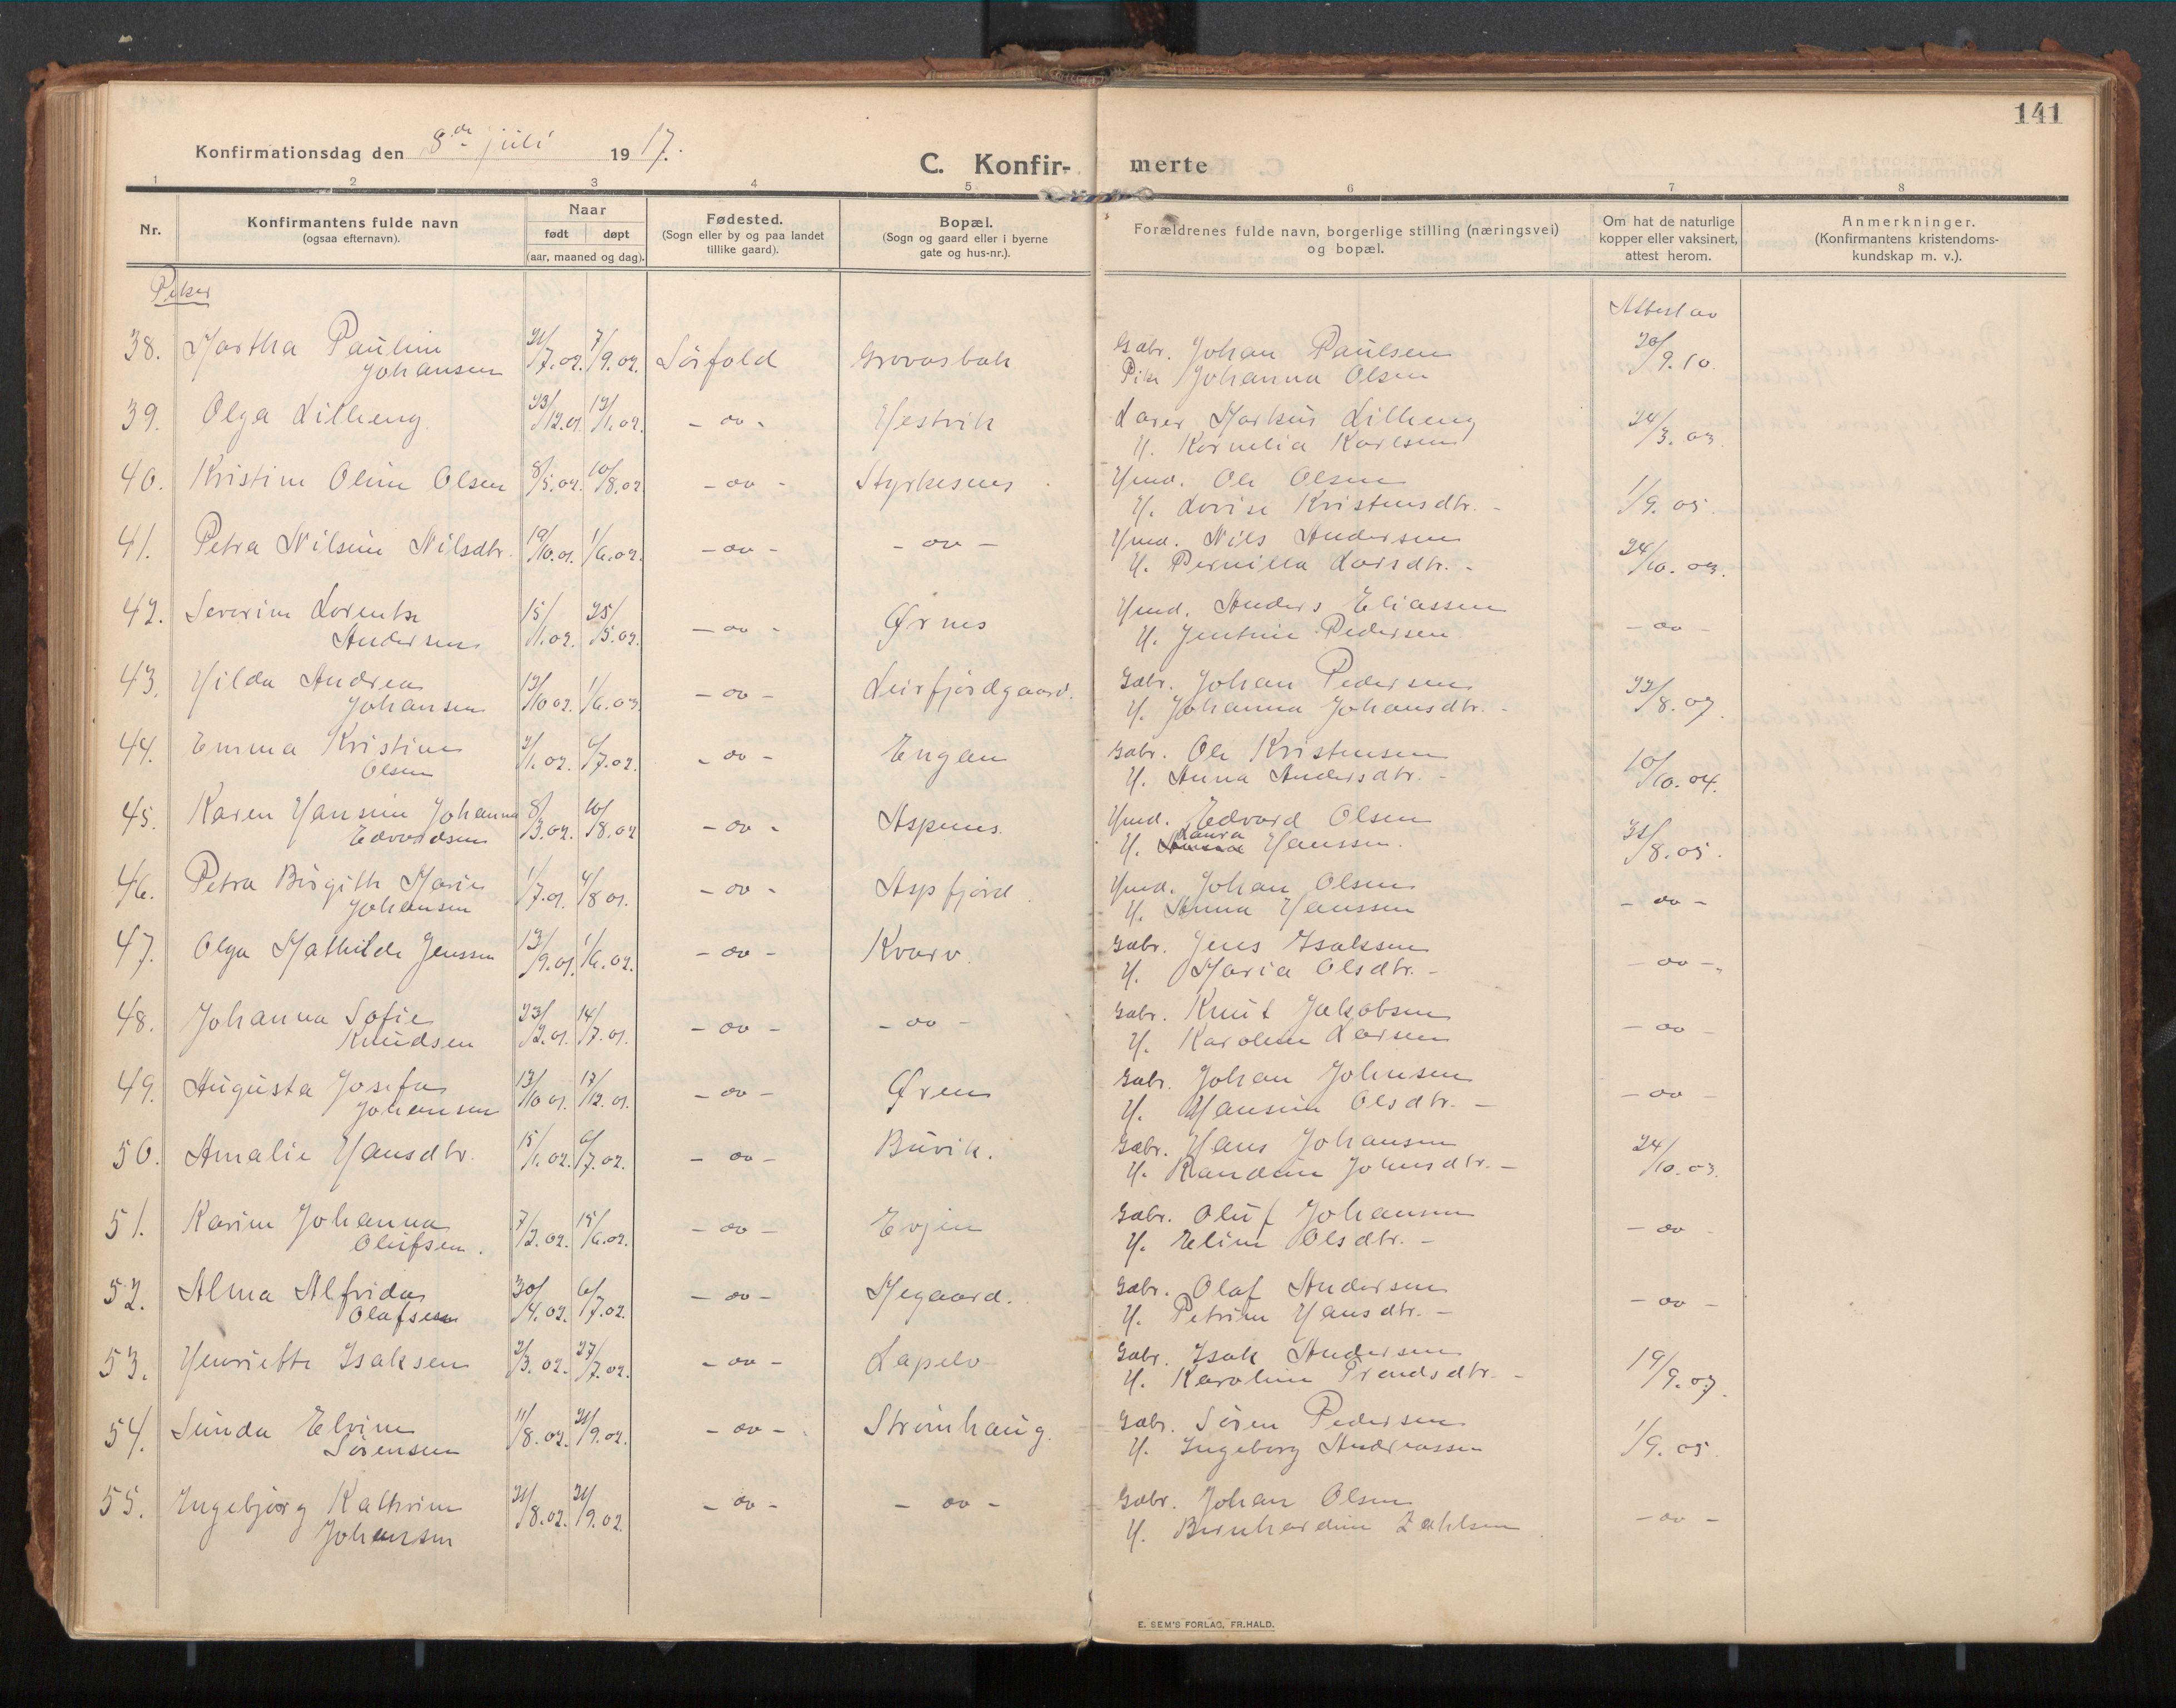 141
Konfirmationsdag den 8de juli 1917.
C. Konfir- merte
1 2 3 4 5 6 7 8
Nr.
Konfirmantens fulde navn
(ogsaa efternavn).
Naar
født døpt
(aar, maaned og dag).
Fødested.
(Sogn eller by og paa landet
tillike gaard).
Bopæl.
(Sogn og gaard eller i byerne
gate og hus-nr.).
Forældrenes fulde navn, borgerlige stilling (næringsvei)
og bopæl.
Om hat de naturlige
kopper eller vaksinert,
attest herom.
Anmerkninger.
(Konfirmantens kristendoms-
kundskap m. v.).
Piker
Attest av
38. Martha Pauline 21/7.02. 7/9.02. Sörfold Grovasbak Gbr. Johan Paulsen 20/9.10.
Johansen Pike Johanna Olsen
39. Olga Lilheng. 23/12.01 12/1.02. - " - Hestvik Lærer Markus Lilheng 24/3.03.
H. Kornelia Karlsen
40. Kristine Oline Olsen 8/5.02. 10/8.02 - " - Styrkesnes Gmd. Ole Olsen 1/9.05.
H. Lovise Kristensdtr. -
41. Petra Nilsine Nilsdtr. 19/10.01. 1/6.02. - " - - " - Gmd. Nils Andersen 24/10.03.
H. Pernilla Larsdtr. -
42. Severine Lorentse 15/1.02. 25/5.02. - " - Ørnes Gmd. Anders Eliassen - " -
Andersen H. Jentine Pedersen
43. Hilda Andrea 12/10 02. 1/6.03 - " - Leirfjördgaard. Gbr. Johan Pedersen 22/8.07.
Johansen H. Johanna Johansdtr. -
44. Emma Kristine 2/1.02. 6/7.02. - " - Engan Gbr. Ole Kristensen 10/10.04.
Olsen H. Anna Andersdtr. -
45. Karen Hansine Johanna 8/3.02. 10/8.02 - " - Aspenes. Gmd. Edvard Olsen 31/8.05.
Edvardsen H. Laura Hanssen.
46. Petra Birgitte Marie 1/7.01. 4/8 01. - " - Aspfjord. Gmd. Johan Olsen - " -
Johansen H. Anna Hanssen
47. Olga Mathilde Jenssen 13/9.01. 1/6.02. - " - Kvarv. Gbr. Jens Isaksen - " -
H. Maria Olsdtr. -
48. Johanna Sofie 23/2.01. 14/7.01. - " - - " - Gbr. Knut Jakobsen - " -
Knudsen H. Karoline Larsen
49. Augusta Josefa 13/10 01. 17/12.01. - " - Øren Gbr. Johan Johnsen - " -
Johansen H. Hansine Olsdtr. -
50. Amalie Hansdtr. 15/1.02. 6/7.02. - " - Buvik. Gbr. Hans Johansen 24/10.03.
H. Randine Johnsdtr. -
51. Karine Johanna 7/2.02. 15/6.02. - " - Evjen Gbr. Oluf Johansen - " -
Olufsen. H. Eline Olsdtr. -
52. Alma Alfrida 30/4.02. 6/7.02. - " - Megaard. Gbr. Olaf Andersen - " -
Olafsen H. Petrine Hansdtr. -
53. Henriette Isaksen 2/3.02. 27/7.02. - " - Lapelv Gbr. Isak Andersen 19/9.07.
H. Karoline Trondsdtr. -
54. Sunda Elvine 11/8.02. 21/9.02. - " - Strömhaug. Gbr. Sören Pedersen 1/9.05.
Sörensen H. Ingeborg Andreassen
55. Ingebjørg Kathrine 21/8.02. 21/9.02. - " - - " - Gbr. Johan Olsen - " -
Johansen H. Bernhardine Zahlsen
E. SEM'S FORLAG, FR.HALD.